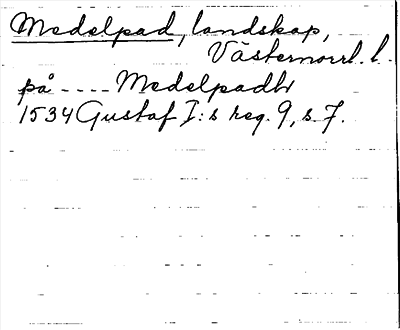 Medelpad, landskap,
Västernorrl. l.
på ---- Medelpadh
1534 Gustaf I:s reg. 9, s. 7.